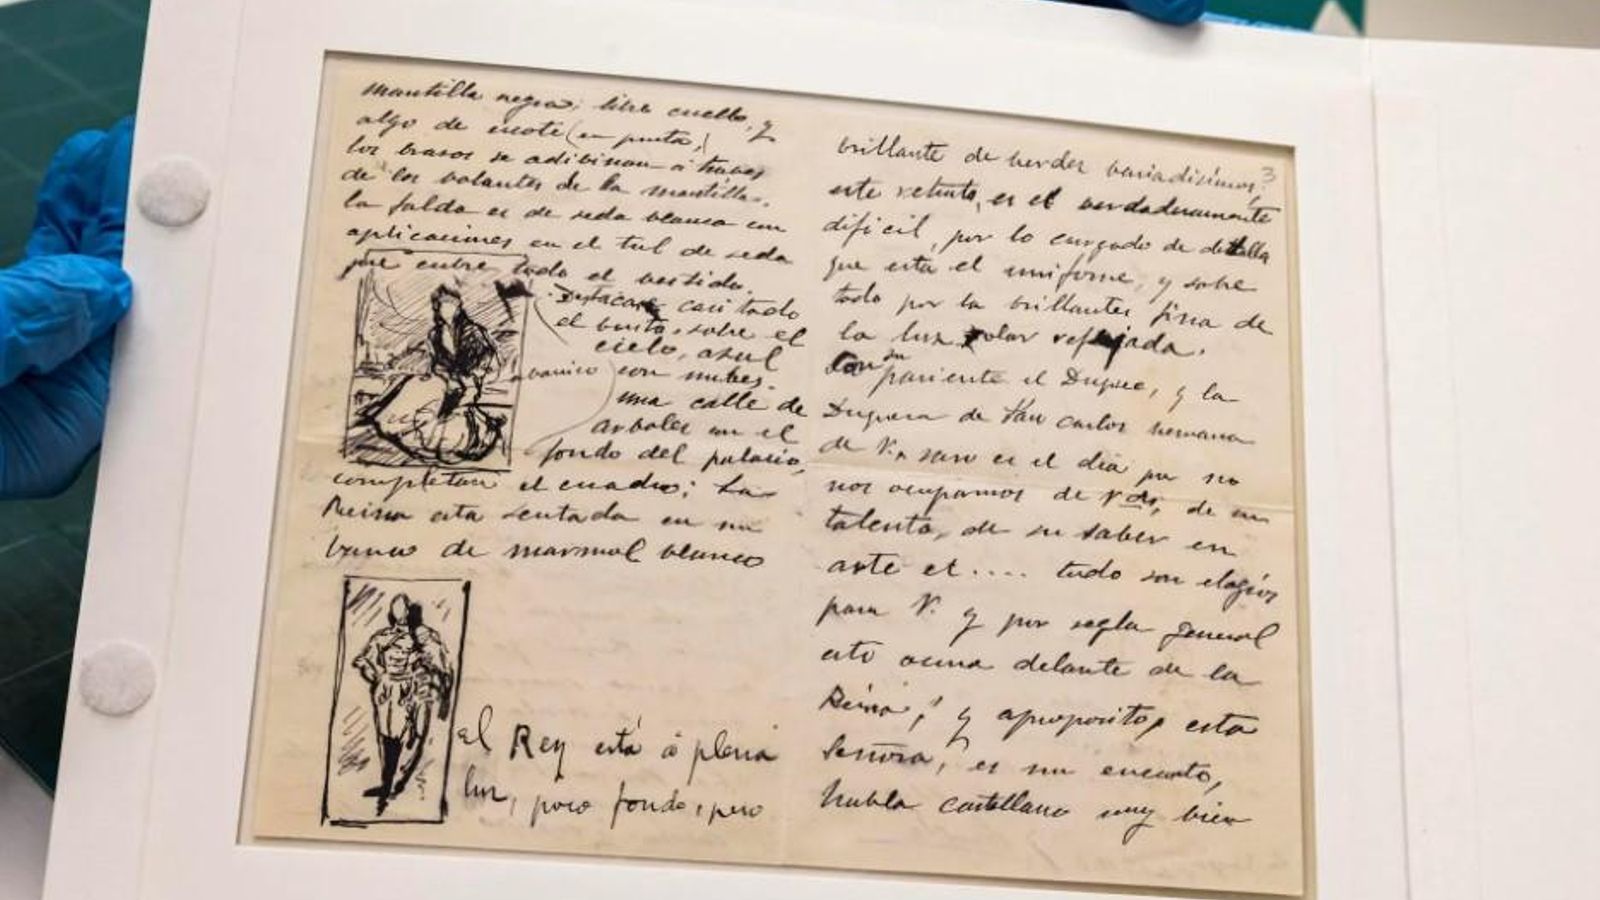 mantilla negra; libre cuello, y
algo de escote (en punta,)
los brasos se adibinan á traves
de los volantes de la mantilla.
la falda es de seda blanca con
aplicaciones en el tul de seda
que cubre todo el vestido.
Destacase casi todo
el busto, sobre el
cielo, azul
abanico
con nubes.
una calle de
arboles en el
fondo del palacio,
completan el cuadro; La
Reina esta sentada en un
banco de marmol blanco
el Rey está á plena
luz, poco fondo, pero
3
brillante de verdes variadisimos,
este retrato, es el verdaderamente
dificil, por lo cargado de detalla
que esta el uniforme, y sobre
todo por la brillantes fisa de
la luz solar reflejada.
Con su pariente el Duque, y la
Duquesa de San Carlos hermana
de V., raro es el dia que no
nos ocupamos de Vds, de su
talento, de su saber en
arte et.... todo son elogios
para V. y por regla general
esto ocurre delante de la
Reina; y aproposito, esta
Señora, es un encanto,
habla castellano muy bien